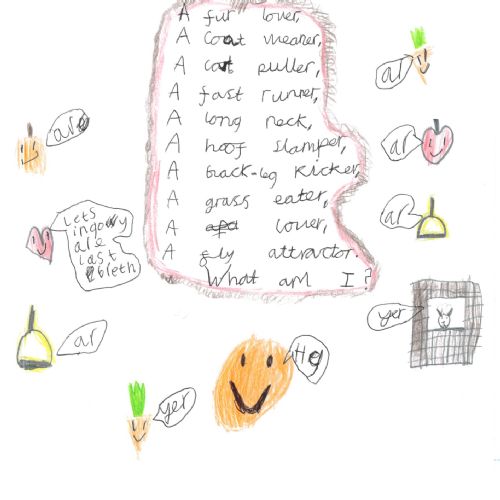 A fur lover,
A Coat wearer,
A cart puller,
A fast runner,
A long neck,
A hoof slamper,
A back-leg kicker,
A grass eater,
A lover,
A fly attractor.
What am I?
ar
are
ar
Lets
ingowy
are
last
breth
ar
yer
ar
yer